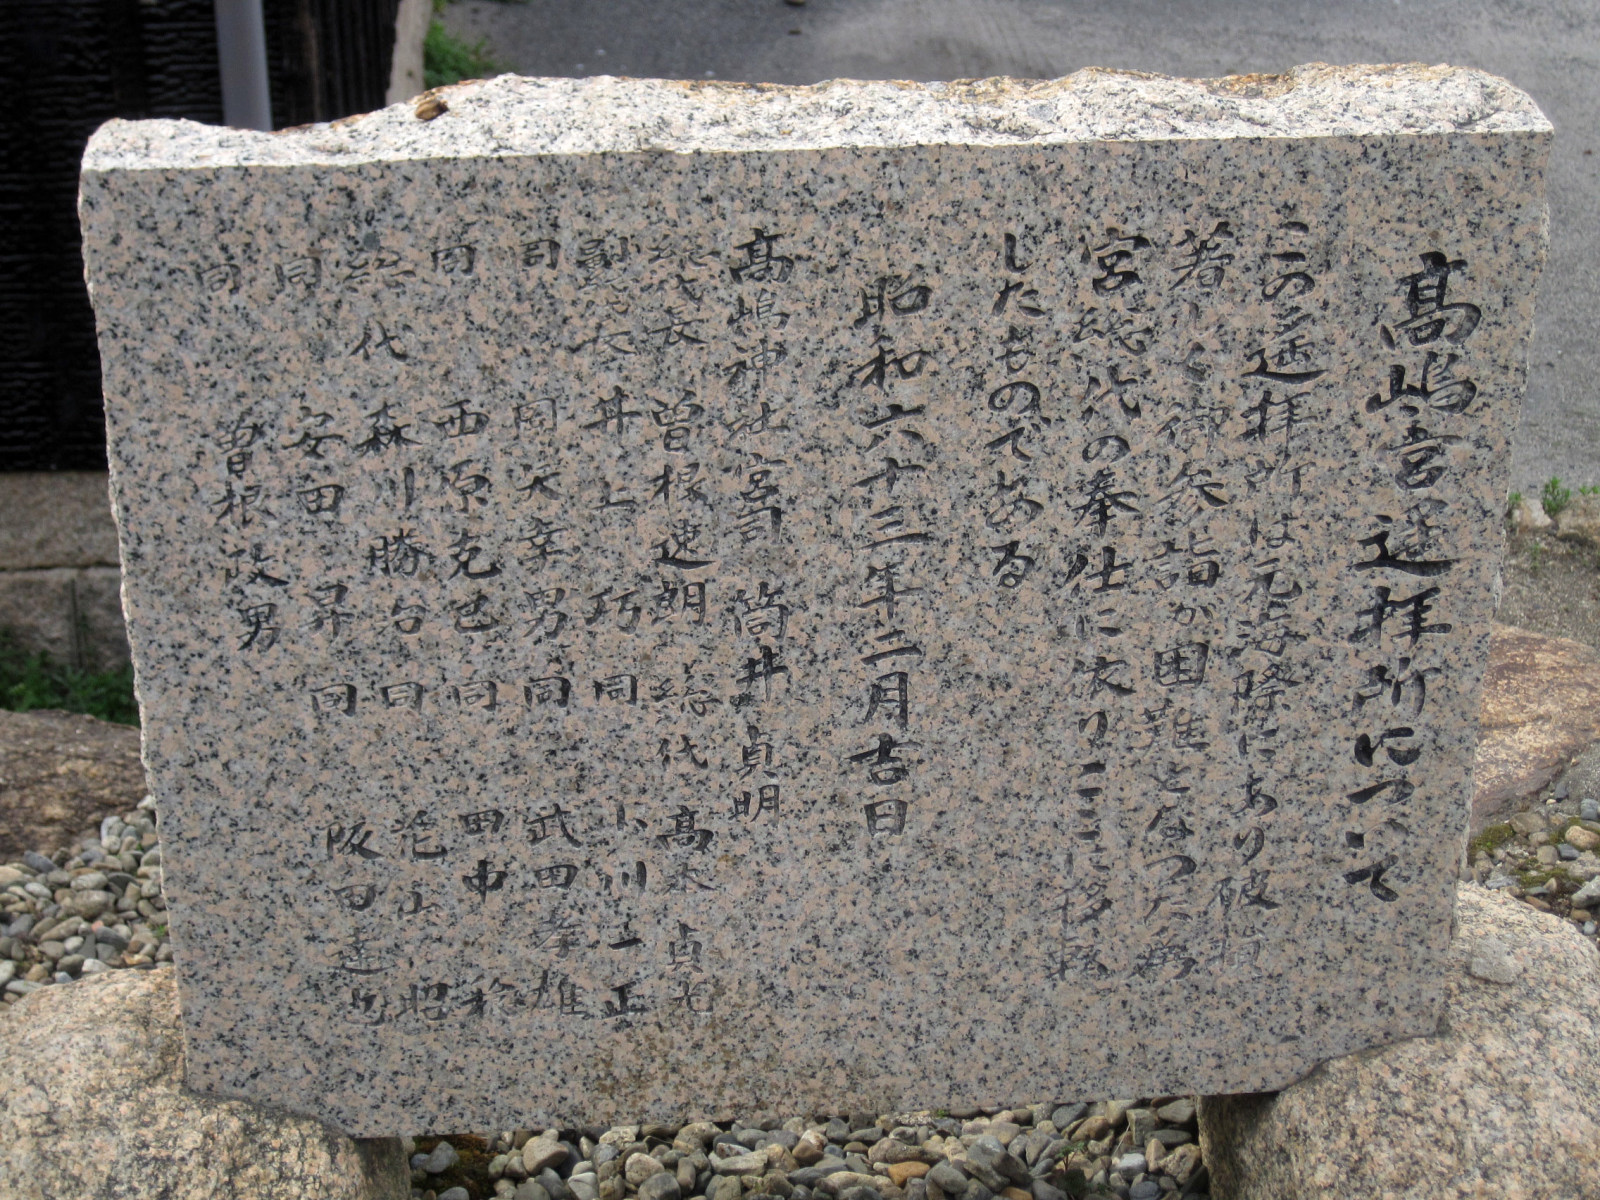 髙嶋宮遥拝所について
この遥拝所は元海際にあり破損
著しく御参詣が困難となつた為
宮総代の奉仕に依りここに移転
したものである
昭和六十三年二月吉日
髙嶋神社宮司 筒井貞明
総代長 曽根速朗 総代 髙木貞光
副総代長 井上巧 同 小川一正
同 岡矢幸男 同 武田孝雄
同 西原克己 同 田中稔
総代 森川勝 同 花山昭
同 安田昇 同 阪田
同 曽根政男